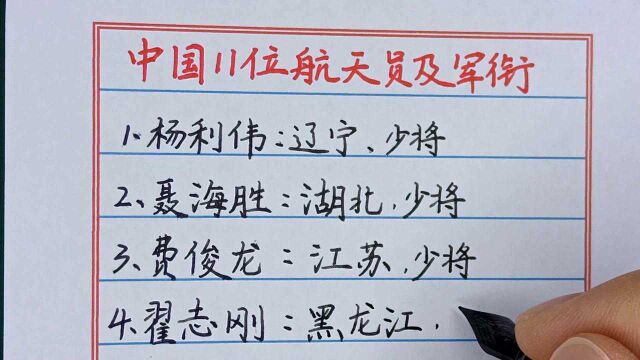 中国11位航天员及军衔
1.杨利伟:辽宁、少将
2、聂海胜:湖北,少将
3、费俊龙:江苏,少将
4.翟志刚:黑龙江,